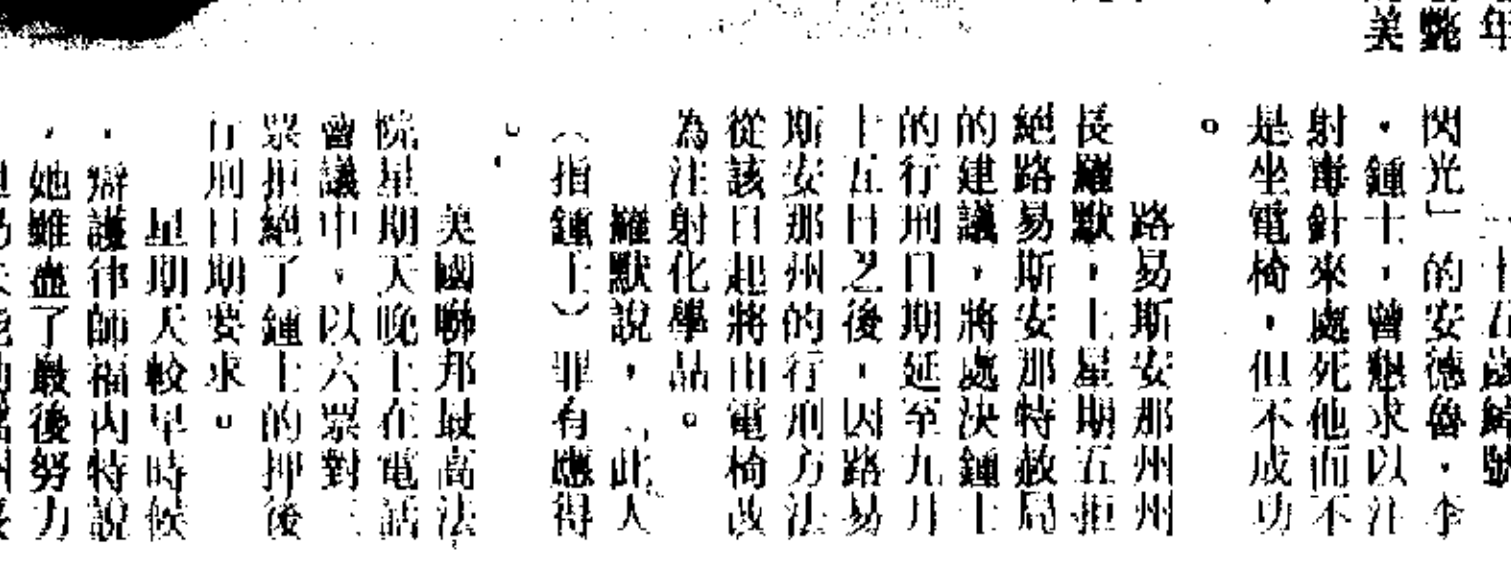 年
艷
美
十五歲綽號
閃光」的安德魯・李
・鍾士，曾懇求以注
射毒針來處死他而不
是坐電椅，但不成功
。
路易斯安那州州
長羅默，上星期五拒
絕路易斯安那特赦局
的建議，將處決鍾士
的行刑日期延至九月
十五日之後，因路易
斯安那州的行刑方法
從該日起將由電椅改
為注射化學品。
羅默說，「此人
（指鍾士）罪有應得
」。
美國聯邦最高法
院星期天晚上在電話
會議中，以六票對三
票拒絕了鍾士的押後
行刑日期要求。
星期天較早時候
，辯護律師福內特說
，她雖盡了最後努力